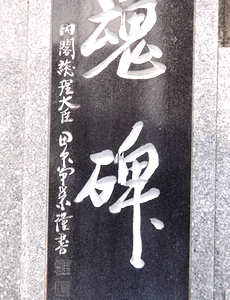 魂碑
内閣総理大臣 田中角榮謹書